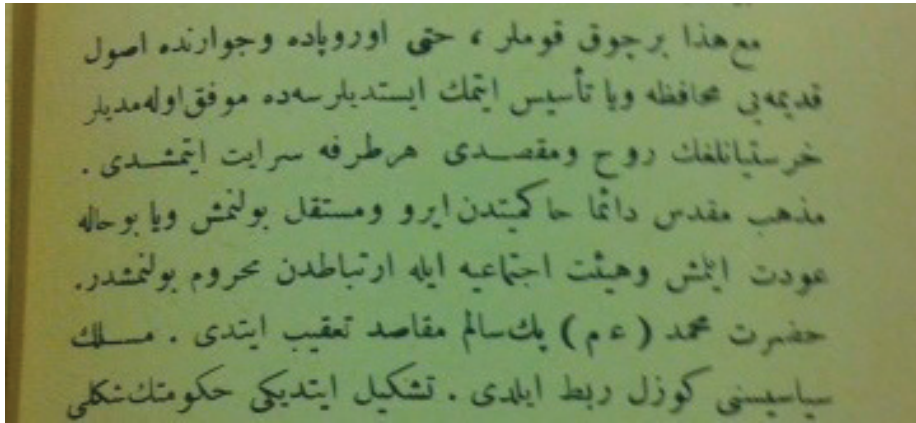 مع هذا بر جوق قوملر ، حتى اوروپاده وجوارنده اصول
قديمه‌يى محافظه ويا تأسيس ايتمك ايستديلرسه‌ده موفق اوله‌مديلر
خرستيانلغك روح ومقصدى هرطرفه سرايت ايتمشدى .
مذهب مقدس دائما حاكميتدن ايرو ومستقل بولنمش ويا بو حاله
عودت ايلمش وهيئت اجتماعيه ايله ارتباطدن محروم بولنمشدر.
حضرت محمد ( ع م ) پك سالم مقاصد تعقيب ايتدى . مسلك
سياسيسنى كوزل ربط ايلدى . تشكيل ايتديكى حكومتك شكلى